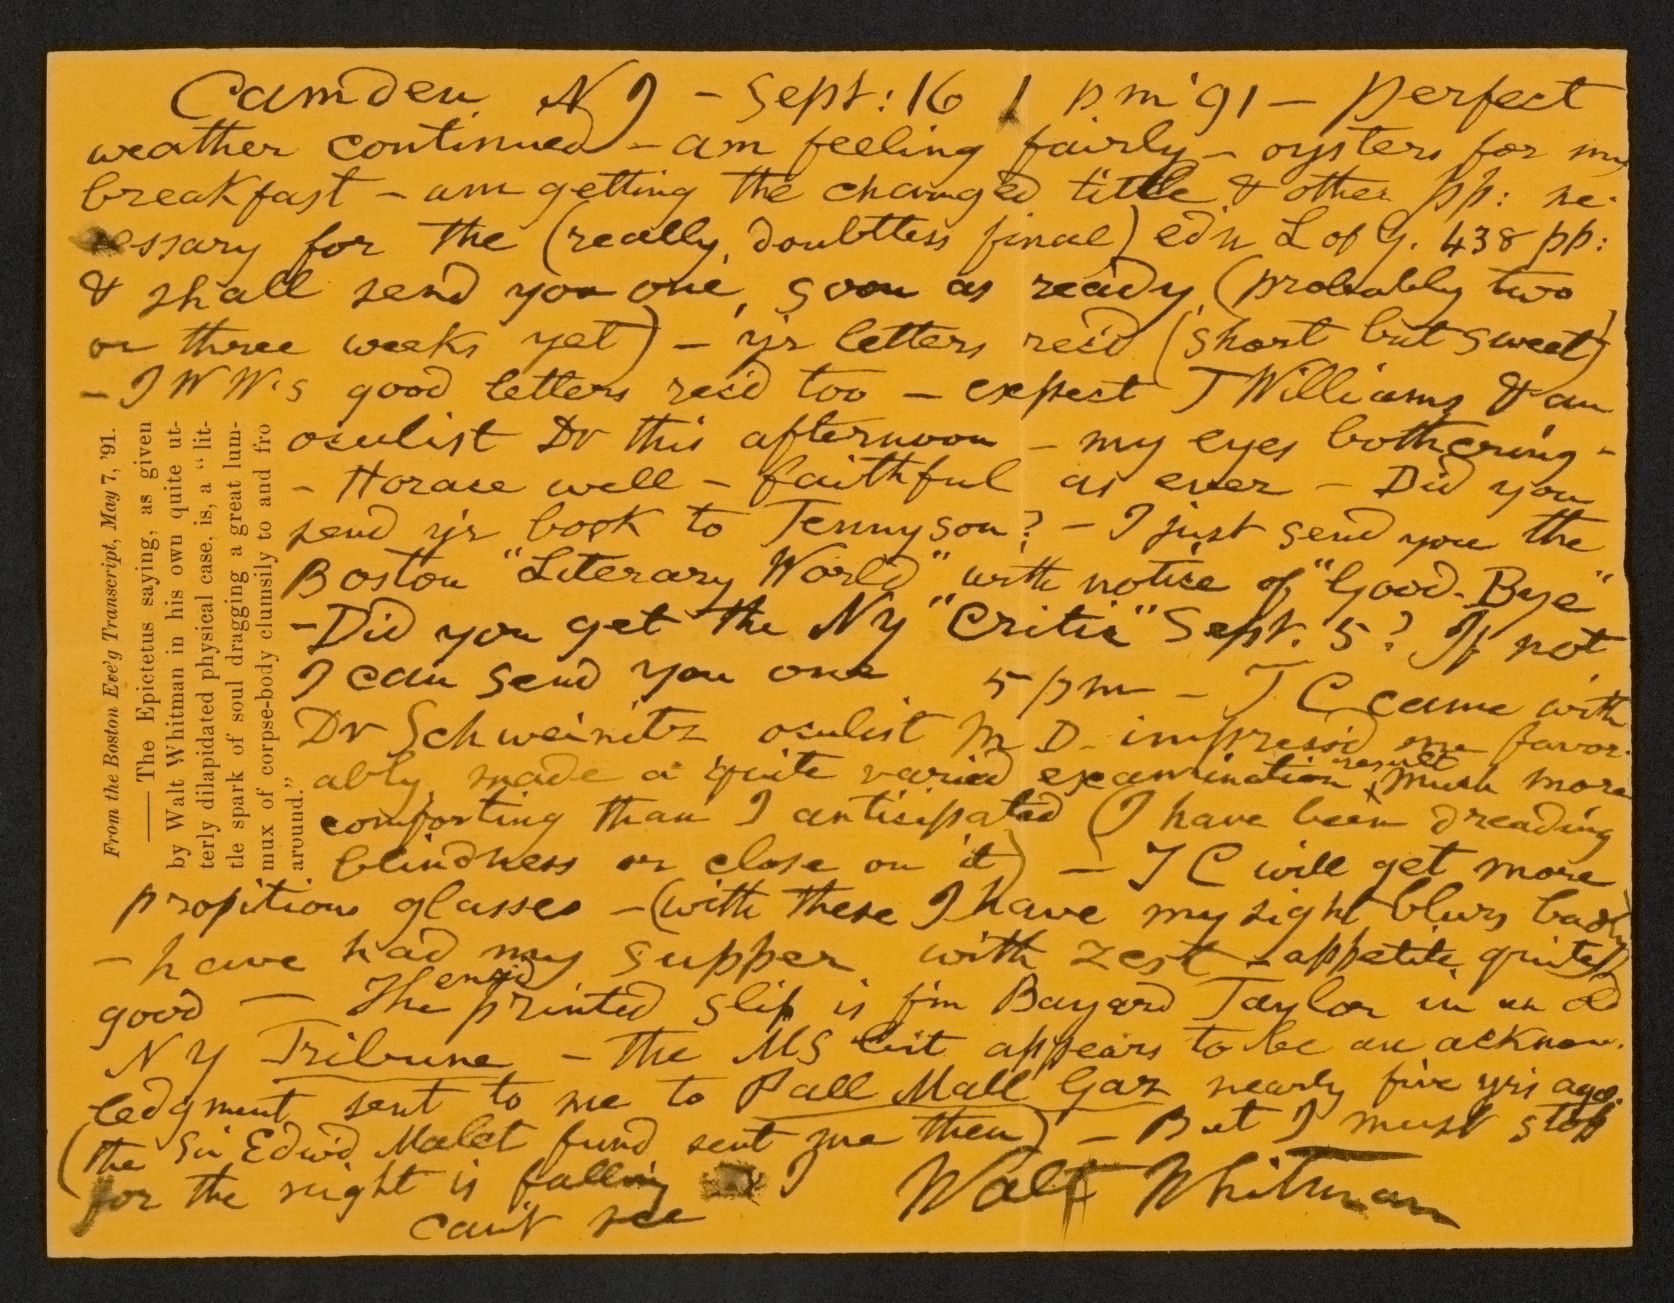 Camden N J – Sept: 16 1 p m '91 – Perfect
weather continued – am feeling fairly – oysters for my
breakfast – am getting the changed title & other pp: ne-
cessary for the (really, doubtless final) ed'n L of G. 438 pp:
& shall send you one, soon as ready, (probably two
or three weeks yet) – y'r letters rec'd (short but sweet)
– J W W's good letters rec'd too – expect T Williams & an
oculist Dr this afternoon – my eyes bothering –
– Horace well – faithful as ever – Did you
send y'r book to Tennyson? – I just send you the
Boston "Literary World" with notice of "Good-Bye"
– Did you get the N Y "Critic" Sept. 5? If not
I can send you one 5 p m – T C came with
Dr Schweinitz oculist M D – impress'd me favor-
ably, made a quite varied examination, result much more
comforting than I anticipated (I have been dreading
blindness or close on it) – T C will get more
propitious glasses – (with these I have my sight blurs badly)
– have had my supper, with zest – appetite quite
good – The enc'd printed slip is f'm Bayard Taylor in an old
N Y Tribune – the MS bit appears to be an acknow-
ledgment sent to me to Pall Mall Gaz nearly five yrs ago.
(the Sir Edw'd Malet fund sent me then) – But I must stop
for the night is falling & I
can't see
Walt Whitman
From the Boston Eve'g Transcript, May 7, '91.
—— The Epictetus saying, as given
by Walt Whitman in his own quite ut-
terly dilapidated physical case, is, a "lit-
tle spark of soul dragging a great lum-
mux of corpse-body clumsily to and fro
around."